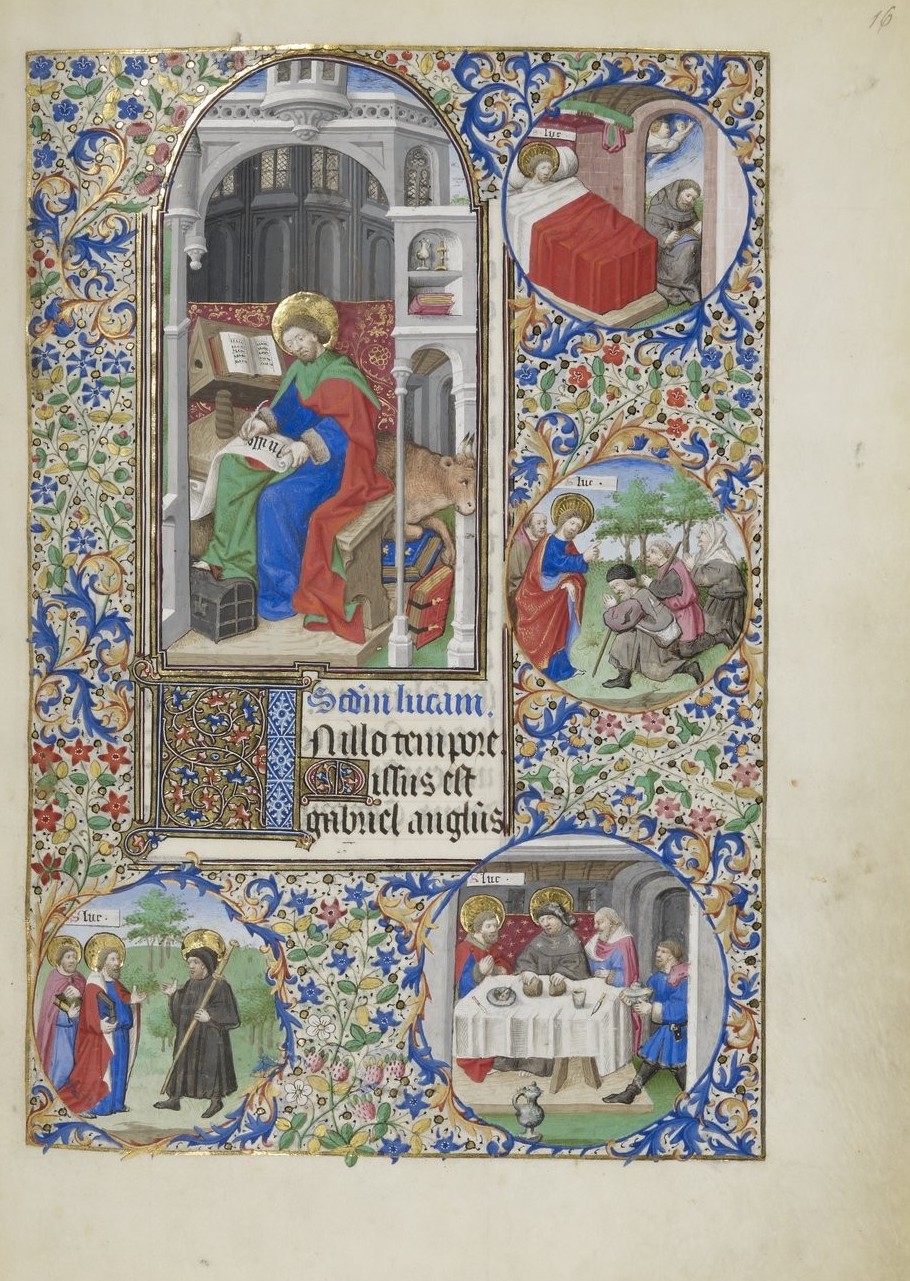 16
luc
luc ·
Scdm lucam.
IN illo tempore
Missus est
gabriel anglus
S luc ·
luc ·